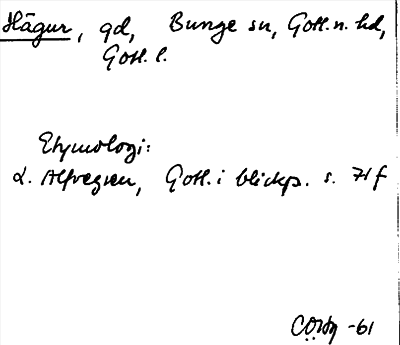 Hägur, gd, Bunge sn, Gotl. n. hd,
Gotl. l.
Etymologi:
L. Alfvegren, Gotl. i blickp. s. 71 f
-61